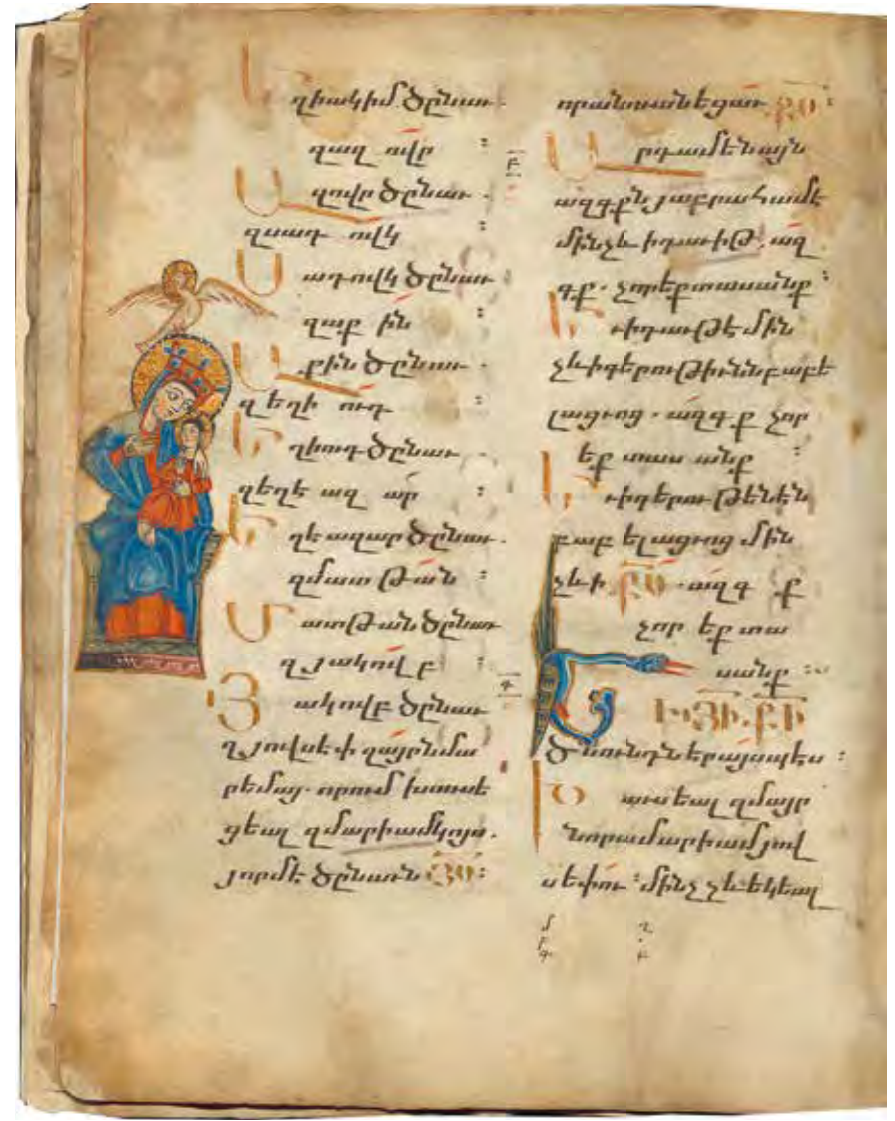 Եղիակիմ ծընաւ.
զազ ովր :
Ազովր ծընաւ.
զսադ ովկ :
Սադովկ ծընաւ
զաք ին :
Աքին ծընաւ.
զեղի ուդ :
Եղիուդ ծընաւ.
զեղե ազ ար :
Եղեազար ծընաւ.
զմատ թան :
Մատթան ծընաւ
զյակովբ :
Յակովբ ծընաւ
զյովսէփ զայրն մա
րեմայ. որում խաւսե
ցեալ զմարիամ կոյս.
յորմէ ծընաւն ՅՍ:
որ անուանեցաւ ՔՍ:
բ
Արդ ամենայն
ազգքն յաբրահամէ
մինչև ի դաւիթ. ազ
գք. չորեքտասանք :
Եւ ի դաւթէ մին
չև ի գերութիւնն բաբե
լացւոց. ազգ ք չոր
եք տաս անք :
Եւ ի գերութենէն
բաբ ելացւոց մին
չև ի ՔՍ. ազգ ք
չոր եք տա
սանք :
գ
ԵՒ ՅԻ. ՔԻ
ծնունդն էր այսպէս :
Խաւսեալ զմայր
նորա մարիամ յով
սեփու : մինչ չև եկեալ